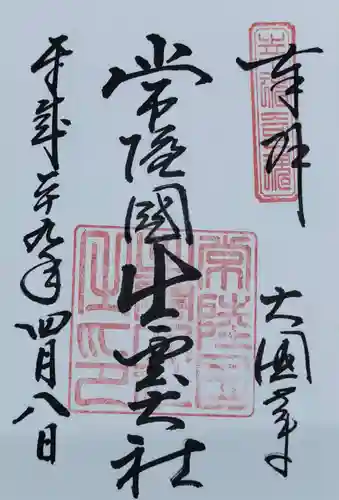 奉拝
大国の幸
常陸國出雲大社
平成廿九年四月八日